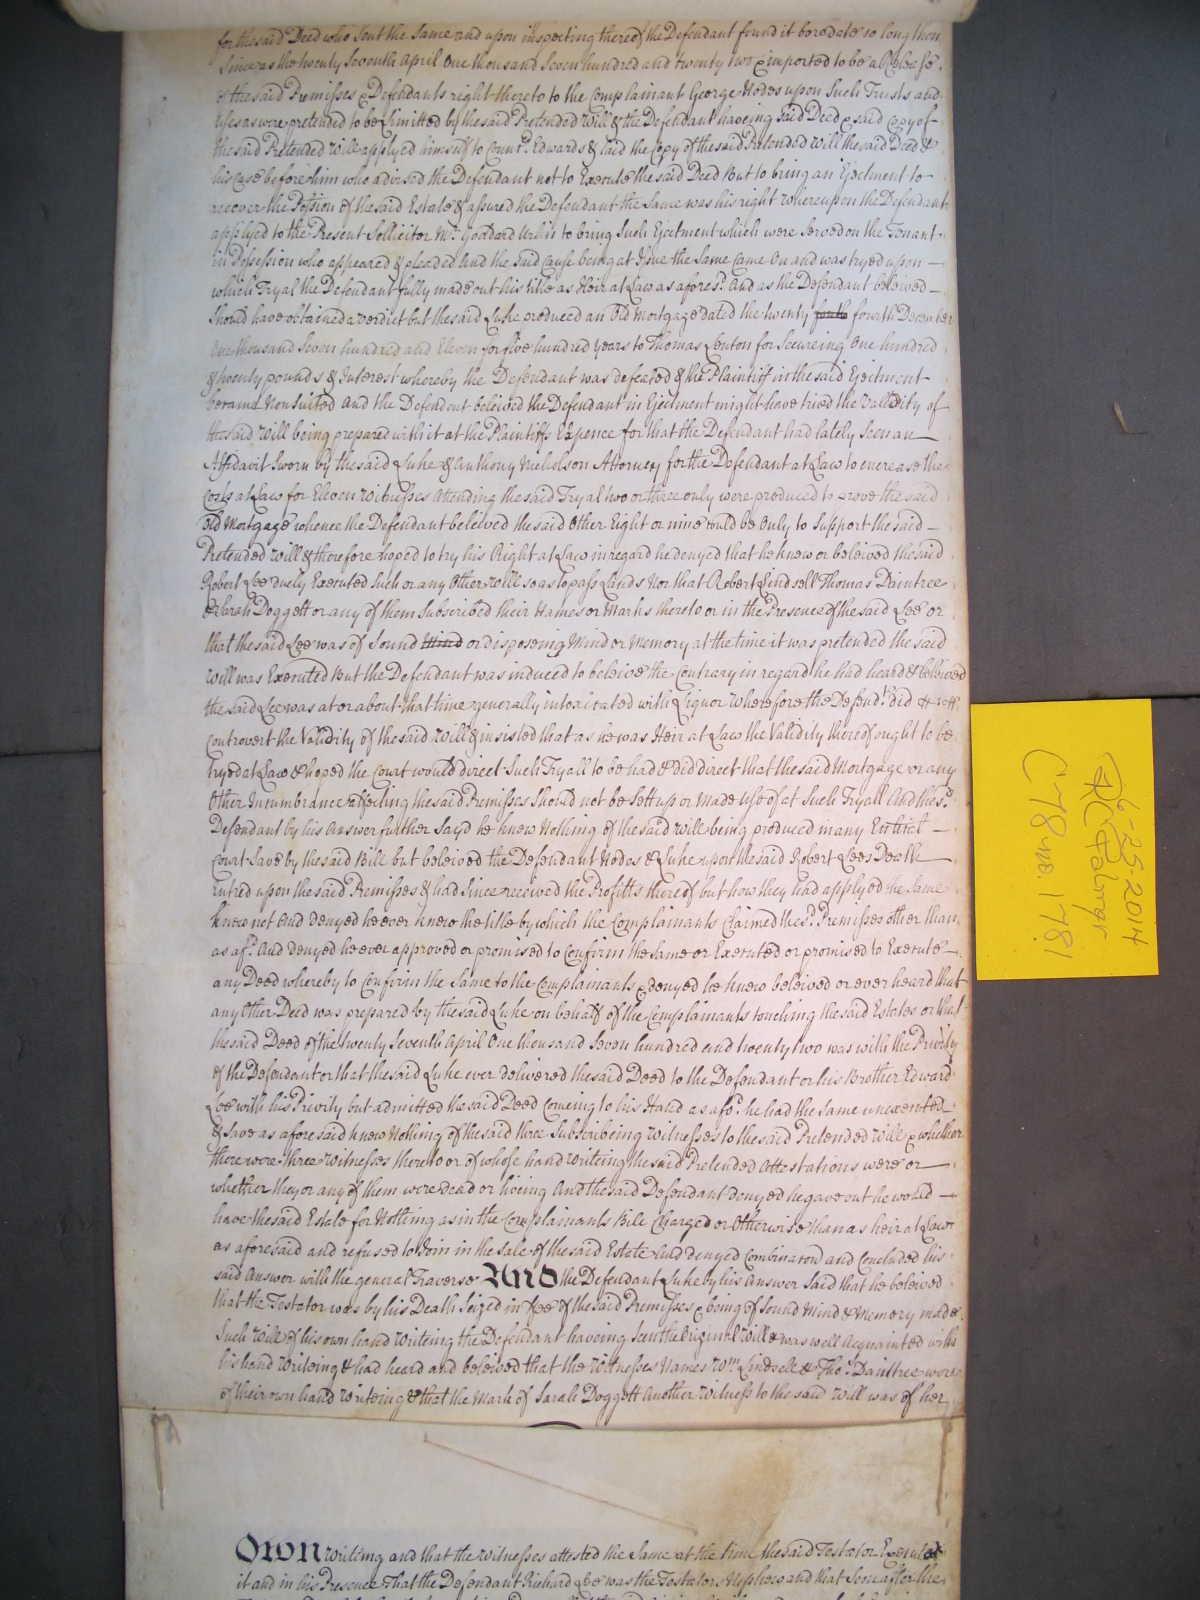 for the said Deed who sent the same and upon inspecting thereof the Defendant found it bore date so long then
since as the twenty seventh April One thousand Seven hundred and twenty two & imported to be a Release
of the said Premisses & Defendants right thereto to the Complainant George Hodes upon Such Trusts and
uses as were pretended to be Limitted by the said Pretended Will & the Defendant haveing said Deed & said Copy of
the said Pretended Will applyed himself to Counr. Edwards & laid the Copy of the said Pretended Will the said Deed &
his Case before him who advised the Defendant not to Execute the said Deed But to bring an Ejectment to
recover the Possion of the said Estate & assured the Defendant the Same was his right whereupon the Defendant
applyed to the Present Sollicitor Mr. Goddard to bring Such Ejectment which were served on the Tenant
in Possession who appeared & pleaded And the said Cause being at Issue the Same Came On and was tryed upon
which Tryal the Defendant fully made out his title as Heir at Law as aforesd. And as the Defendant beleived
should have obtained a verdict but the said Luke produced an Old Mortgage dated the twenty fourth December
One thousand Seven hundred and Eleven for five hundred years to Thomas Lenton for Secureing One hundred
& twenty pounds & Interest whereby the Defendant was defeated & the Plaintiff in the said Ejectment
became Non Suited And the Defendent beleived the Defendant in Ejectment might have tried the Vallidity of
the said Will being prepared with it at the Plaintiffs Expence for that the Defendant had lately seen an
Affidavit Sworn by the said Luke & Anthony Nicholson Attorney for the Defendant at Law to encrease the
Costs at Law for Eleven Witnesses Attending the said Tryal two or three only were produced to prove the said
Old Mortgage whence the Defendant beleived the said Other Eight or nine could be Only to Support the said
Pretended Will & therefore hoped to try his Right at Law in regard he denyed that he knew or beleived the said
Robert Lee duely Executed Such or any Other Will so as to pass Lands Nor that Robert Lindsell Thomas Daintree
Sarah Doggett or any of them Subscribed their Names or Marks thereto or in the Presence of the said Lee or
that the said Lee was of Sound Mind or disposeing Mind or Memory at the time it was pretended the said
Will was Executed But the Defendant was induced to beleive the Contrary in regard he had heard & beleived
the said Lee was at or about that time generally intoxicated with Liquor Wherefore the Defendt. did
Controvert the Validity of the said Will & insisted that as he was Heir at Law the Validity thereof ought to be
tryed at Law & hoped the Court would direct Such Tryall to be had & did direct that the said Mortgage or any
Other Incumbrance affecting the said Premisses Should not be Sett up or Made use of at Such Tryall And the sd.
Defendant by his Answer further Sayd he knew Nothing of the said Will being produced in any
Court Save by the said Bill but beleived the Defendant Hodes & Luke upon the said Robert Lees Death
entred upon the said Premisses & had Since received the Profitts thereof but how they had applyed the Same
knew not And denyed he ever knew the title by which the Complainants Claimed the sd. Premisses other than
as afd. And denyed he ever approved or promised to Confirm the same or Executed or promised to Execute
any Deed whereby to Confirm the Same to the Complainants & denyed he knew beleived or ever heard that
any Other Deed was prepared by the said Luke on behalf of the Complainants touching the said Estates or that
the said Deed of the twenty Seventh April One thousand Seven hundred and twenty two was with the Privity
of the Defendant or that the said Luke ever delivered the said Deed to the Defendant or his Brother Edward
Lee with his Privity but admitted the said Deed Comeing to his Hand as afod. he had the Same unexecuted
& Save as aforesaid knew Nothing of the said three Subscribeing Witnesses to the said Pretended Will & whether
there were three Witnesses thereto or of whose hand Writeing the said Pretended Attestations were or
whether they or any of them were Dead or liveing And the said Defendant denyed he gave out he would
have the said Estate for Nothing as in the Complainants Bill Charged or Otherwise than as heir at Law
as aforesaid and refused to Join in the Sale of the said Estate And denyed Combinaton and Concluded his
said Answer with the general Traverse And the Defendant Luke by his Answer Said that he beleived
that the Testator was by his Death Seized in fee of the said Premisses & being of Sound Mind & Memory made
Such Will of his own hand Writeing the Defendant haveing seen the Original Will & was well Acquainted with
his hand Writeing & had heard and beleived that the Witnesses Names Wm. Lindsell & Thos. Daintree were
of their own hand Writeing & that the Mark of Sarah Doggett Another Witness to the said Will was of her
Own writing and that the Witnesses attested the Same at the time the said Testator Executed
it and in his Presence That the Defendant Richard Lee was the Testators Nephew and that Soon after the
6-25-2014
R C Palmer
C 78 no. 1781